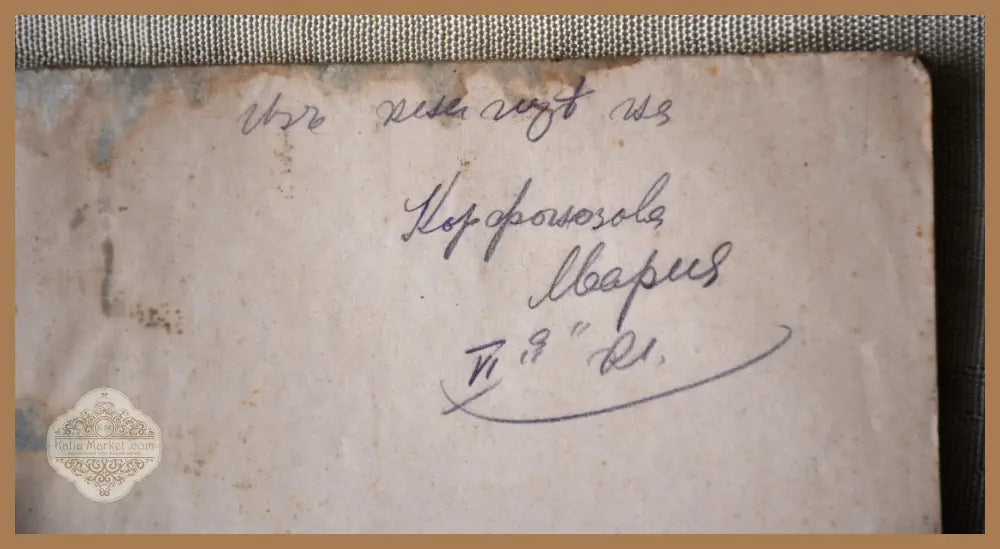 Изъ книгитѣ на
Корфонозова
Мария
VI „я" кл.
KM
Katia Market .com